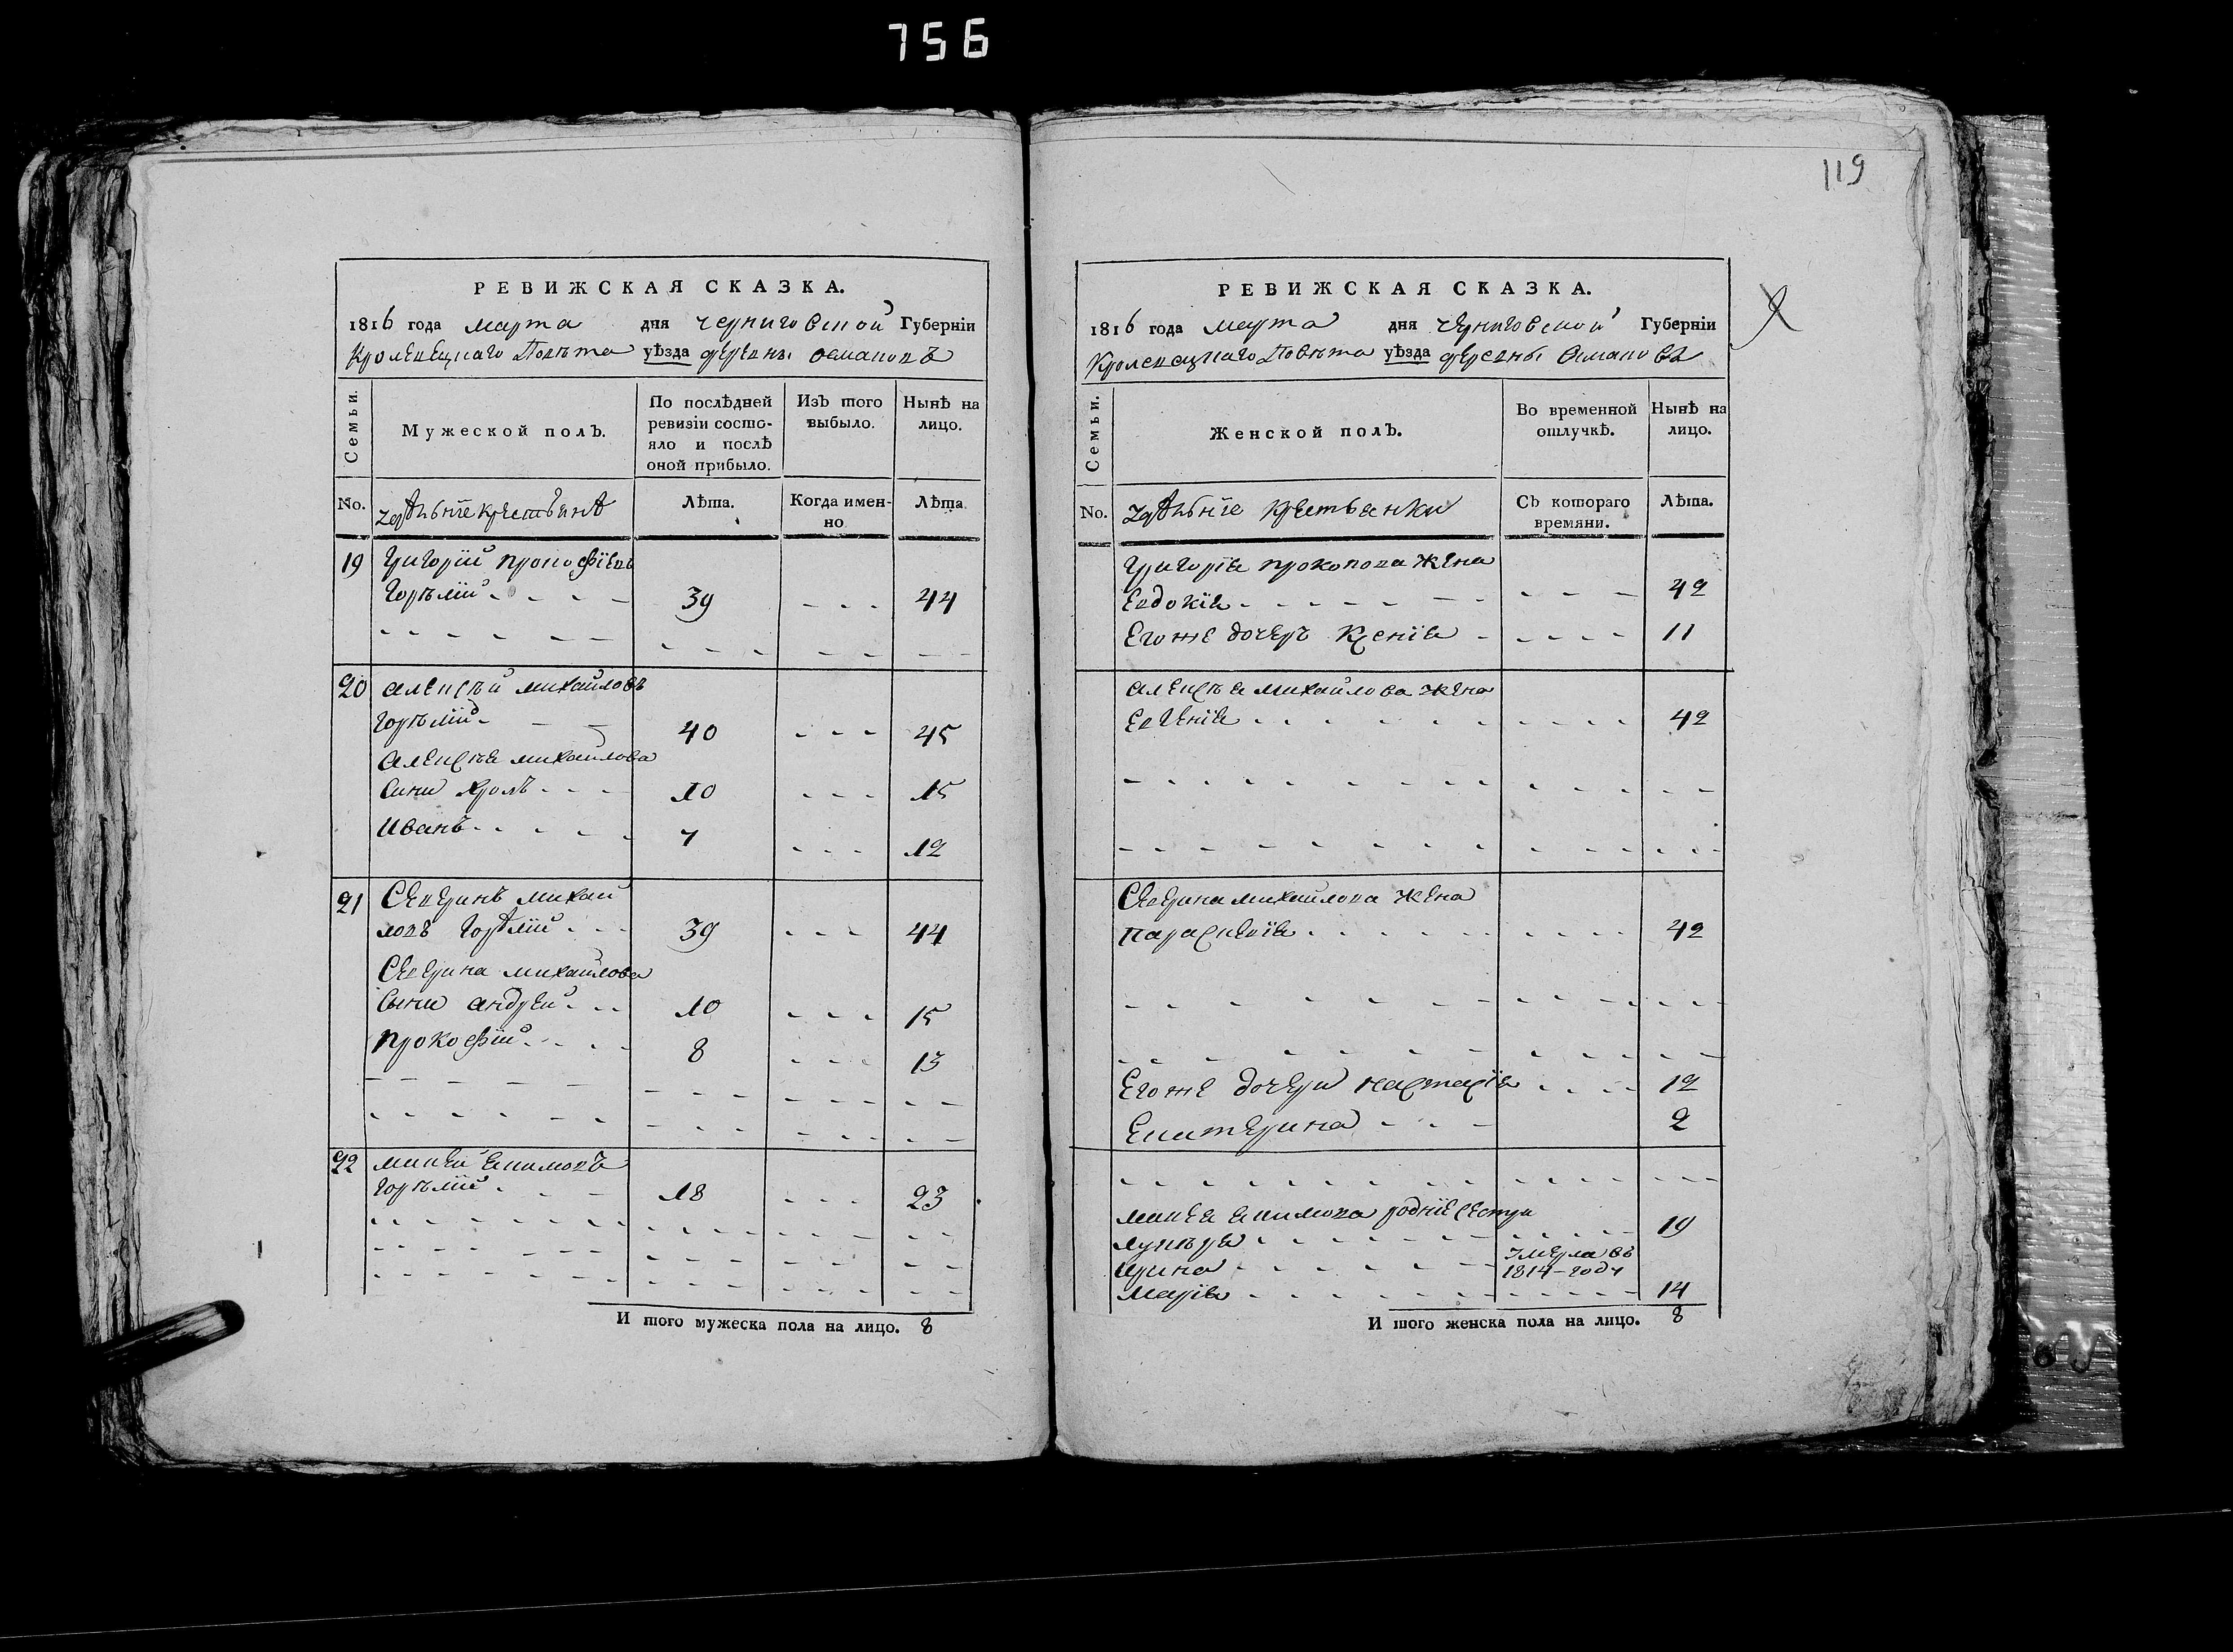 756
119
РЕВИЖСКАЯ СКАЗКА.
1816 года марта дня черниговской Губерніи
Кролевецкаго Повѣта уѣзда деревны Османовъ
Семьи.
Мужеской полъ.
По послѣдней ревизіи состо-
яло и послѣ
оной прибыло.
Изъ того выбыло.
Нынѣ на лицо.
No. здѣшніе крестьяне
Лѣта.
Когда имен-
но
Лѣта
19 Григорій прокофіевъ
Горѣлій 39 44
20 алексѣй михайловъ
Горѣлій 40 45
алексѣя михайлова
сини Фролъ 10 15
Иванъ 7 12
21 Северинъ михай
ловъ Горѣлій 39 44
Северина михайлова
сыни андрей 10 15
прокофій 8 13
22 миней екимовъ
Горѣлій 18 23
И того мужеска пола на лицо. 8
РЕВИЖСКАЯ СКАЗКА.
1816 года марта дня черниговской Губерніи
Кролевецкаго Повѣта уѣзда деревны Османовъ
Семьи.
Женской полъ.
Во временной отлучкѣ.
Нынѣ на лицо.
No. здѣшніе крестьянки
Съ котораго времяни.
Лѣта.
Григорія прокопова жена
Евдокія 42
Его же дочеръ Ксенія 11
алексѣя михайлова жена
Евгенія 42
Северина михайлова жена
параскевія 42
Его же дочери настасія 12
Екатерина 2
минея екимова родніе сестри
лукѣря 19
Ирина умерла въ
1814 году
Марія 14
И того женска пола на лицо. 8